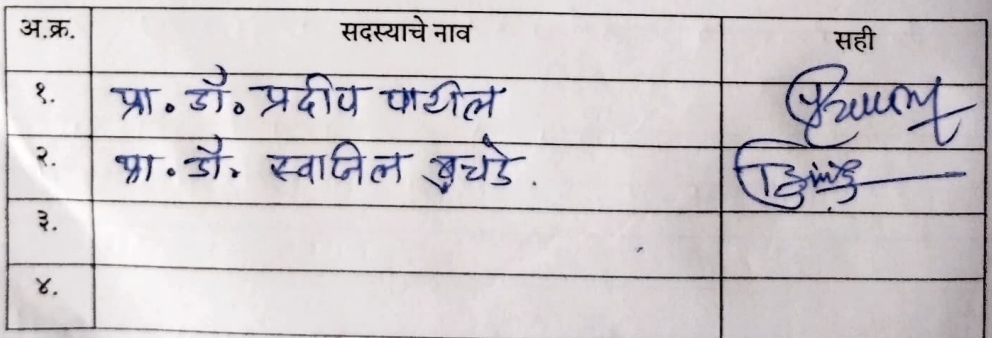 अ.क्र. सदस्याचे नाव सही
१. प्रा. डॉ. प्रदीप पाटील
२. प्रा. डॉ. स्वप्निल बुचडे.
३.
४.